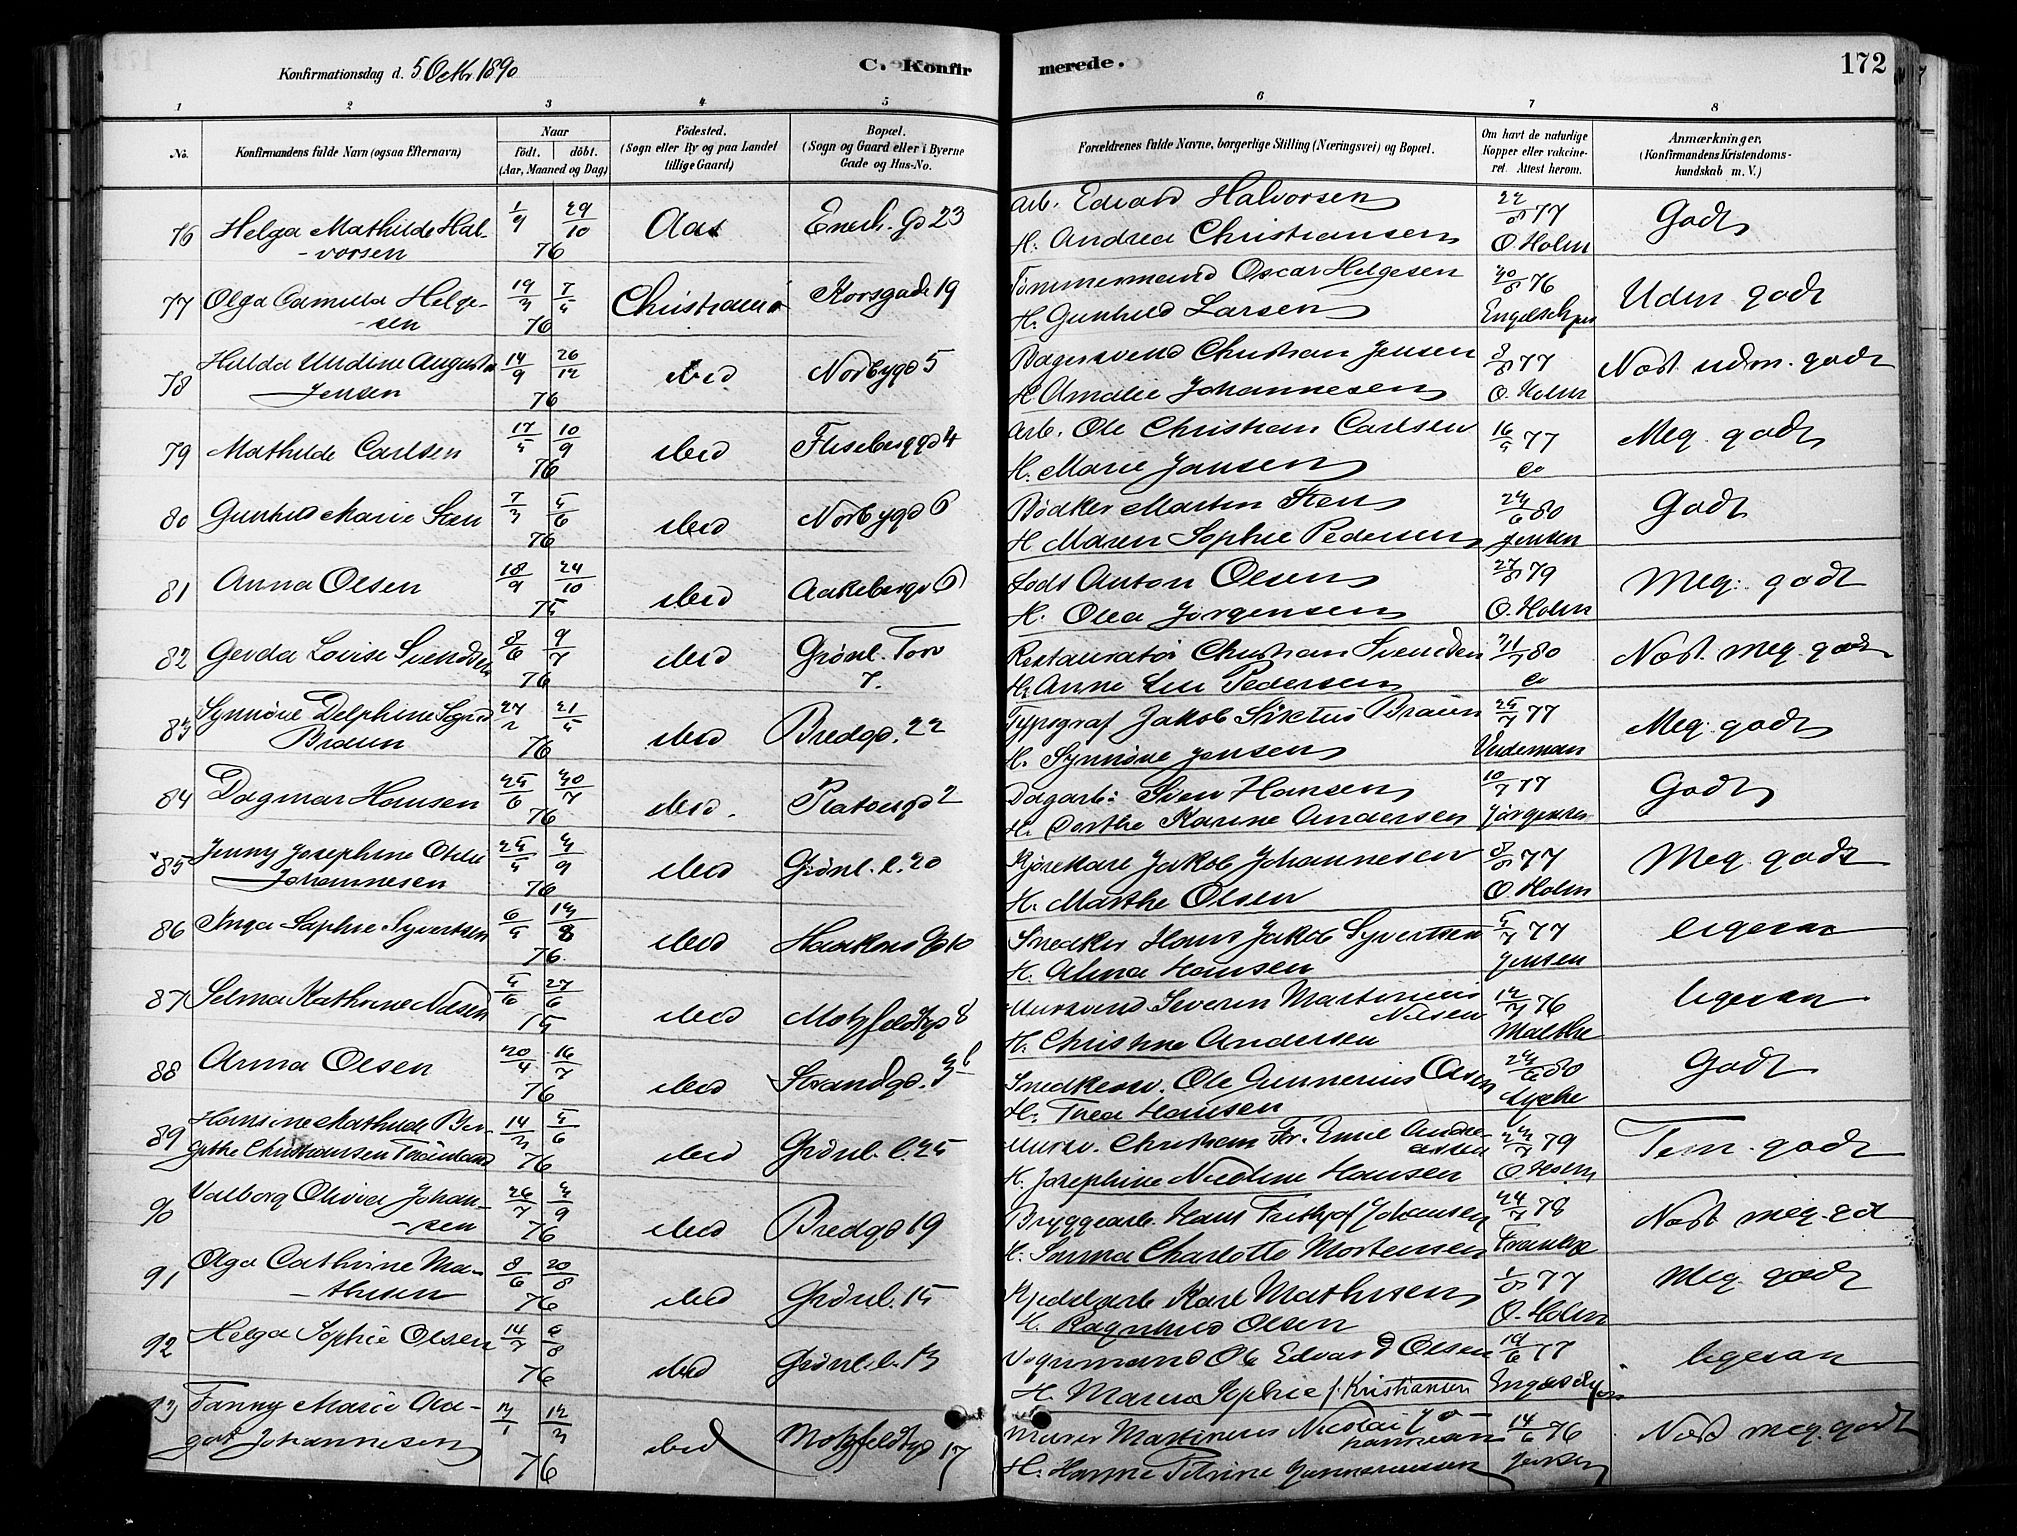 Konfirmationsdag d. 5 Octbr 1890
C. Konfirmerede.
172
1 2 3 4 5 6 7 8
No. Konfirmandens fulde Navn (ogsaa Efternavn) Naar födt. döbt. (Aar, Maaned og Dag) Födested. (Sogn eller By og paa Landet tillige Gaard) Bopæl. (Sogn og Gaard eller i Byerne Gade og Hus-No. Forældrenes fulde Navne, borgerlige Stilling (Næringsvei) og Bopæl. Om havt de naturlige Kopper eller vakcineret. Attest herom. Anmærkninger, (Konfirmandens Kristendomskundskab m. V.)
76 Helga Mathilde Halvorsen 1/9 29/10 76 Aas Enerh. Gd 23 Arb. Edvard Halvorsen H. Andrea Christiansen 22/8 77 O. Holm Godt
77 Olga Camilla Helgesen 19/3 7/5 76 Christiania Korsgade 19 Tömmermand Oscar Helgesen H. Gunhild Larsen 30/8 76 Engelschjøn Uden godt
78 Hilda Undine Augusta Jensen 14/9 26/12 76 ibid Norbygd 5 Bagersvend Christian Jensen H. Amalie Johannesen 8/8 77 O. Holm Næst udm. godt
79 Mathilde Carlsen 17/5 10/9 76 ibid Flisberggd 4 Arb. Ole Christian Carlsen H. Marie Jansen 16/5 77 Meg. godt
80 Gunhild Marie Sten 7/3 5/6 76 ibid Norbygd 6 Bödker Martin Sten H. Maren Sophie Pedersen 24/6 80 Jensen Godt
81 Anna Olsen 18/9 24/10 75 ibid Aakebergv 6 Lods Anton Olsen H. Olea Jörgensen 27/8 79 O. Holm Meg. godt
82 Gerda Lovise Svendsen 8/6 9/7 76 ibid Grönl. Torv 7. Restauratör Christian Svendsen H. Anne Lise Pedersen 80 Næst. meg. godt
83 Synnöve Delphine Sigrid Braun 27/2 21/5 76 ibid Bredgd. 22 Typograf Jakob Sixtus Braun H. Synnöve Jensen 25/7 77 Meg. godt
84 Dagmar Hansen 25/6 30/7 76 ibid. Platousgd 2 Dagarb: Sven Hansen H. Dorthe Karine Andersen 10/7 77 Jørgensen Godt
85 Jenny Josephine Otilie Johannesen 25/5 3/9 76 ibid Grönl. l. 20 Kjörekarl Jakob Johannesen H. Marthe Olsen 8/8 77 O. Holm Meg. godt
86 Inga Sophie Syvertsen 6/5 13/8 76. ibid Haakons Gd 10 Snedker Hans Jakob Syvertsen H. Alma Hansen 5/7 77 Jensen ligesaa
87 Selma Kathrine Nilsen 5/6 27/6 75 ibid Motzfeldtgd 8 Mursvend Severin Martinius Nilsen H. Christine Andersen 76 Malthe ligesaa
88 Anna Olsen 20/4 16/7 76 ibid Strandgd. 3b Snedkersv. Ole Gunnerius Olsen H. Thea Hansen 24/6 80 Lyche Godt
89 Hansine Mathilde Birgithe Christiansen 14/3 5/6 76 ibid Grönl. l. 25 Mursv. Christian Fr. Emil Andreassen H. Josephine Nicoline Hansen 79 O. Holm Tem. godt
90 Valborg Olivia Johansen 26/7 3/9 76 ibid Bredgd 19 Bryggearb. Hans Frithjof Johansen H. Emma Charlotte Mortensen 24/7 78 Næst meg. gd
91 Olga Cathrine Mathisen 8/6 20/8 76 ibid Grönl. 15 Kjedelarb Karl Mathisen H. Ragnhild Olsen 1/8 77 O. Holm Meg. godt
92 Helga Sophie Olsen 14/7 6/8 76 ibid Grönlsl. 13 Vognmand Ole Edvard Olsen H. Maren Sophie f. Kristiansen 19/6 77 Engelschjøn ligesaa
93 Fanny Marie Aagot Johannesen 76 ibid Motzfeldtgd 17 Murer Martinius Nicolai Johannesen H. Hanne Petrine Gunnarsen 14/6 76 Jensen Næst meg. godt